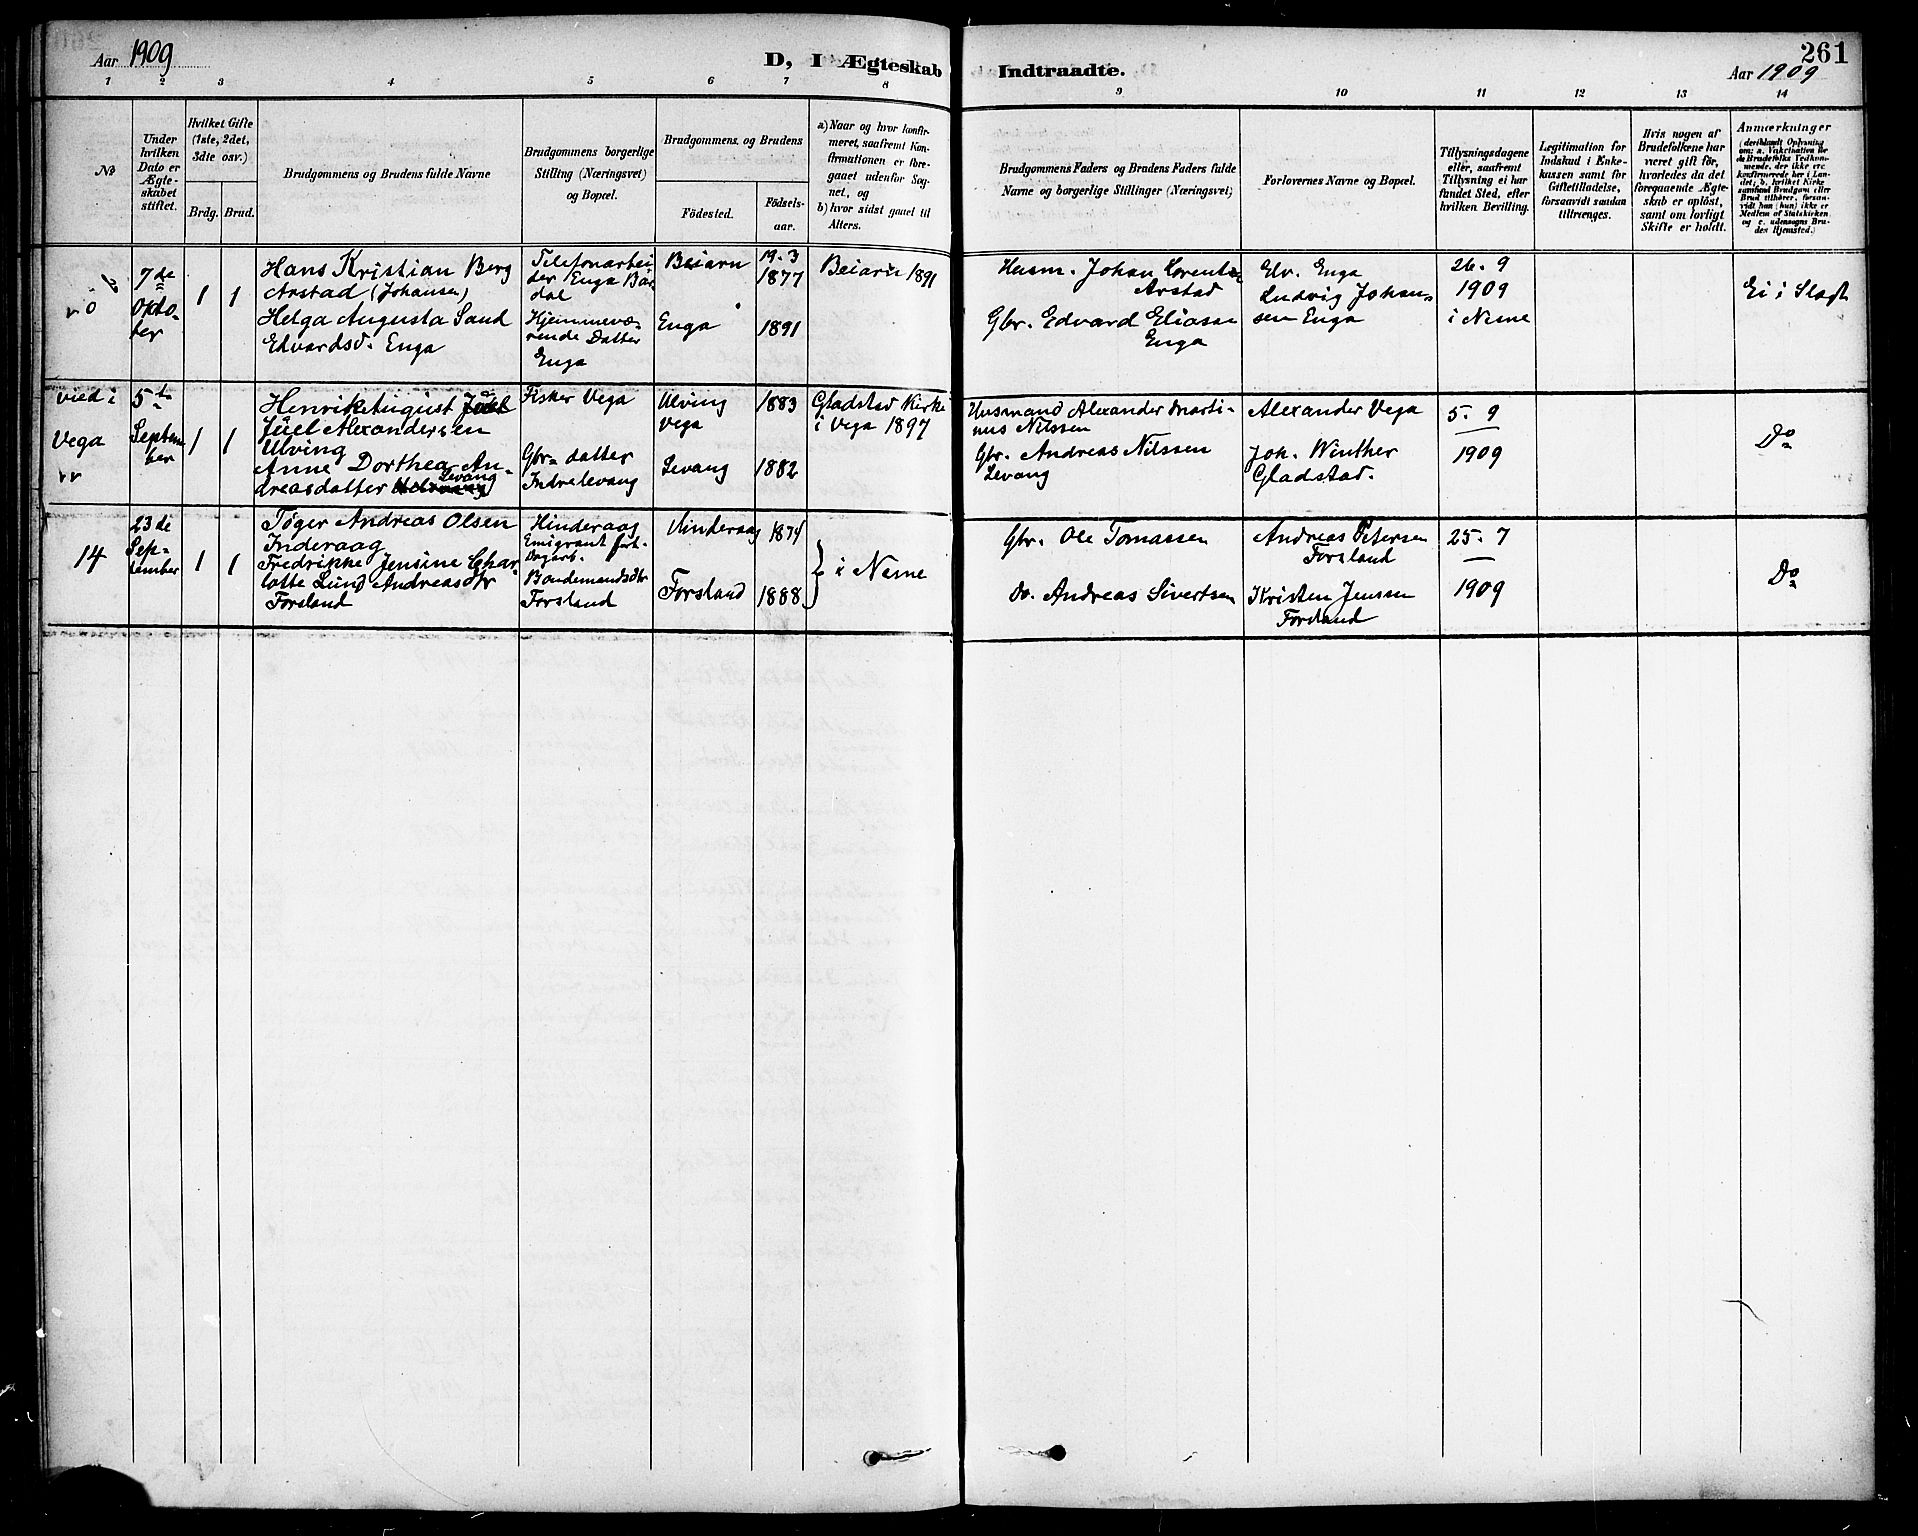 Aar 1909
D, I Ægteskab
Indtraadte.
261
Aar 1909
1 2 3 4 5 6 7 8 9 10 11 12 13 14
No
Under
hvilken
Dato er
Ægte-
skabet
stiftet.
Hvilket Gifte
(1ste, 2det,
3die osv.)
Brdg. Brud.
Brudgommens og Brudens fulde Navne
Brudgommens borgerlige
Stilling (Næringsvei)
og Bopæl.
Brudgommens og Brudens
Födested.
Födsels-
aar.
a) Naar og hvor konfir-
meret, saafremt Kon-
firmationen er fore-
gaaet udenfor Sog-
net, og
b) hvor sidst gaaet til
Alters.
Brudgommens Faders og Brudens Faders fulde
Navne og borgerlige Stillinger (Næringsvei)
Forlovernes Navne og Bopæl.
Tillysningsdagene
eller, saafremt
Tillysning ei har
fundet Sted, efter
hvilken Bevilling.
Legitimation for
Indskud i Enke-
kassen samt for
Giftetilladelse,
forsaavidt saadan
tiltrænges.
Hvis nogen af
Brudefolkene har
været gift før,
hvorledes da det
foregaaende Ægte-
skab er oplöst,
samt om lovligt
Skifte er holdt.
Anmærkninger
(deriblandt Oplysning
om: a. Vakcination for
de Brudefolks Vedkom-
mende, der ikke ere
konfirmerede her i Lan-
det; b. hvilket Kirke-
samfund Brudgom eller
Brud tilhører, forsaa-
vidt han (hun) ikke er
Medlem af Statskirken,
og c. udensogns Bru-
des Hjemsted.)
7de
Okto-
ber
1 1
Hans Kristian Berg
Arstad (Johansen)
Helga Augusta Sand
Edvardsd. Enga
Telefonarbei
der Enga Bar
dal
Hjemmevæ-
rende Datter
Enga
Beiarn
Enga
19-3
1877
1891
Beiarn 1891
Husm. Johan Lorents
Arstad
Gbr. Edvard Eliasen
Enga
Elv. Enga
Ludvig Johan-
sen Enga
26-9
1909
i Nesne
Ei i Slagt
Vied i
Vega
5te
Septem
ber
1 1
Henrik August
Juel Alexandersen
Ulving
Anne Dorthea An-
dreasdatter Levang
Fisker Vega
Gbr- datter
Indre levang
Ulving
Vega
Levang
1883
1882
Gladstad Kirke
i Vega 1897
Husmand Alexander Marti-
nus Nilssen
Gbr. Andreas Nilssen
Levang
Alexander Vega
Joh. Winther
Gladstad.
5-9
1909
Do
14
23de
Sep-
tember
1 1
Tøger Andreas Olsen
Inderaag
Fredrikke Jensine Char
lotte Lund Andreasdtr
Forsland
Hinderaag
Emigrant fort.
Dagarb.
Bondemandsdtr
Forsland
Hinderaag
Forsland
1874
1888
i Nesne
Gbr. Ole Tomassen
Do. Andreas Sivertsen
Andreas Petersen
Forsland
Kristen Jenssen
Forsland
25-7
1909
Do